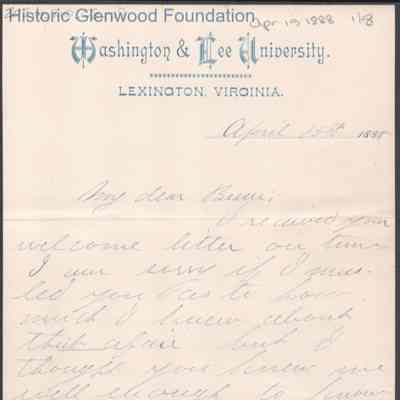 Historic Glenwood Foundation
Apr 19 1888 1/8
Washington & Lee University.
LEXINGTON, VIRGINIA.
April 1888
My dear
I received your
welcome letter on time
I am sorry if I mis-
led you as to how
much I knew about
that affair but I
thought you knew me
well enough to know